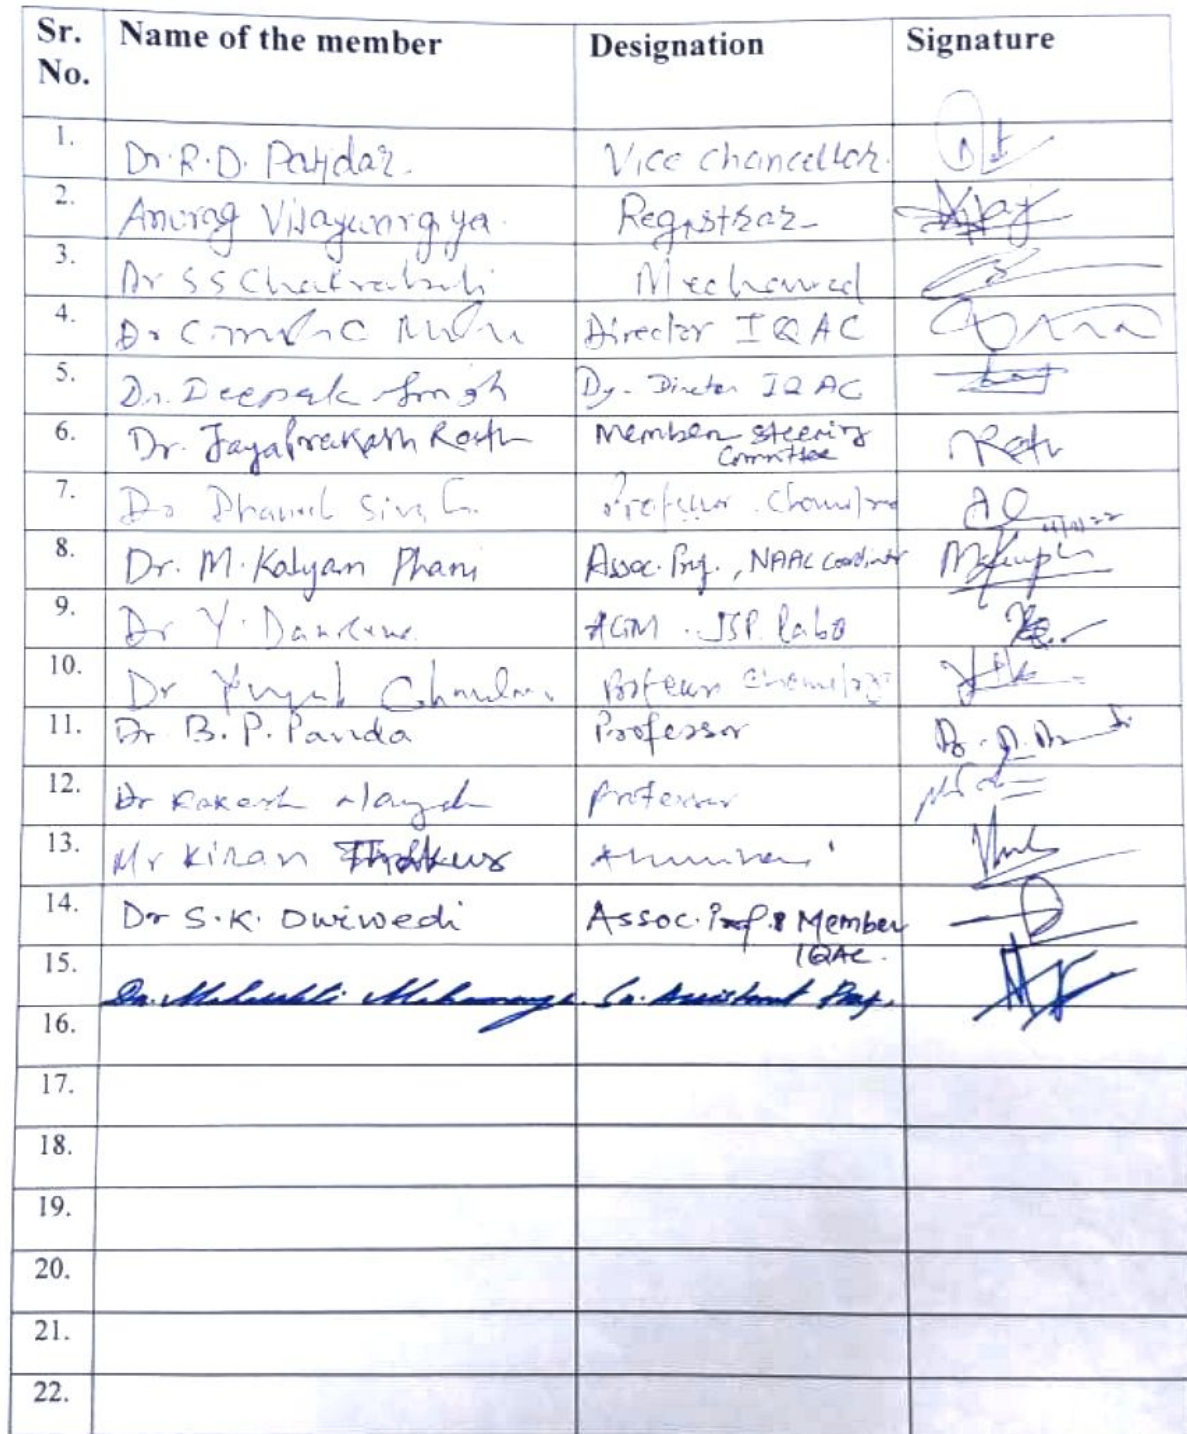 Sr. No. Name of the member Designation Signature
1. Dr. R. D. Patidar. Vice Chancellor.
2. Anurag Vijayvargiya. Registrar
3. Dr S S Chakrabarti Mechanical
4. Dr Director IQAC
5. Dr. Deepak Singh Dy. Director IQAC
6. Dr. Jayaprakash Rath Member steering
Committee
7. Dr Professor
8. Dr. M. Kalyan Phani Assoc. Prof., NAAC Coordinator
9. Dr Y. AGM . JSP labo
10. Dr
11. Dr B. P. Panda Professor
12. Dr Rakesh Nayak Professor
13. Mr Kiran Thakur Alumini
14. Dr S. K. Dwivedi Assoc. Prof. & Member
IQAC.
15. Dr. Sr. Assistant Prof.
16.
17.
18.
19.
20.
21.
22.